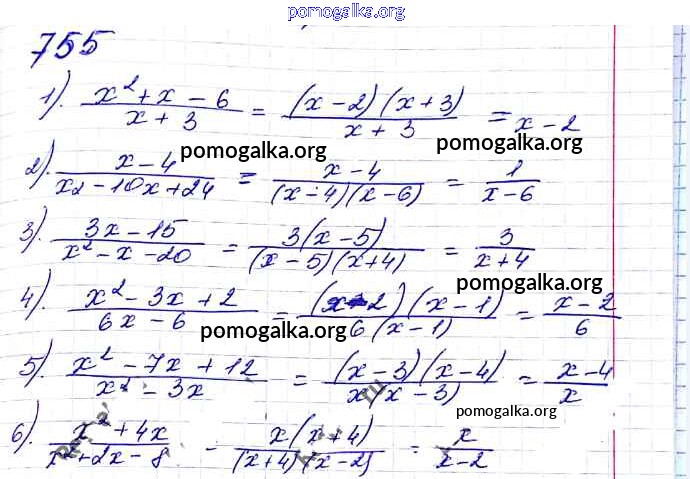 pomogalka.org
755
1). \frac{x^2 + x - 6}{x + 3} = \frac{(x - 2)(x + 3)}{x + 3} = x - 2
pomogalka.org pomogalka.org
2). \frac{x - 4}{x_2 - 10x + 24} = \frac{x - 4}{(x - 4)(x - 6)} = \frac{1}{x - 6}
3). \frac{3x - 15}{x^2 - x - 20} = \frac{3(x - 5)}{(x - 5)(x + 4)} = \frac{3}{x + 4}
pomogalka.org
4). \frac{x^2 - 3x + 2}{6x - 6} = \frac{(x - 2)(x - 1)}{6(x - 1)} = \frac{x - 2}{6}
pomogalka.org
5). \frac{x^2 - 7x + 12}{x^2 - 3x} = \frac{(x - 3)(x - 4)}{x(x - 3)} = \frac{x - 4}{x}
pomogalka.org
6). \frac{x^2 + 4x}{x^2 + 2x - 8} = \frac{x(x + 4)}{(x + 4)(x - 2)} = \frac{x}{x - 2}